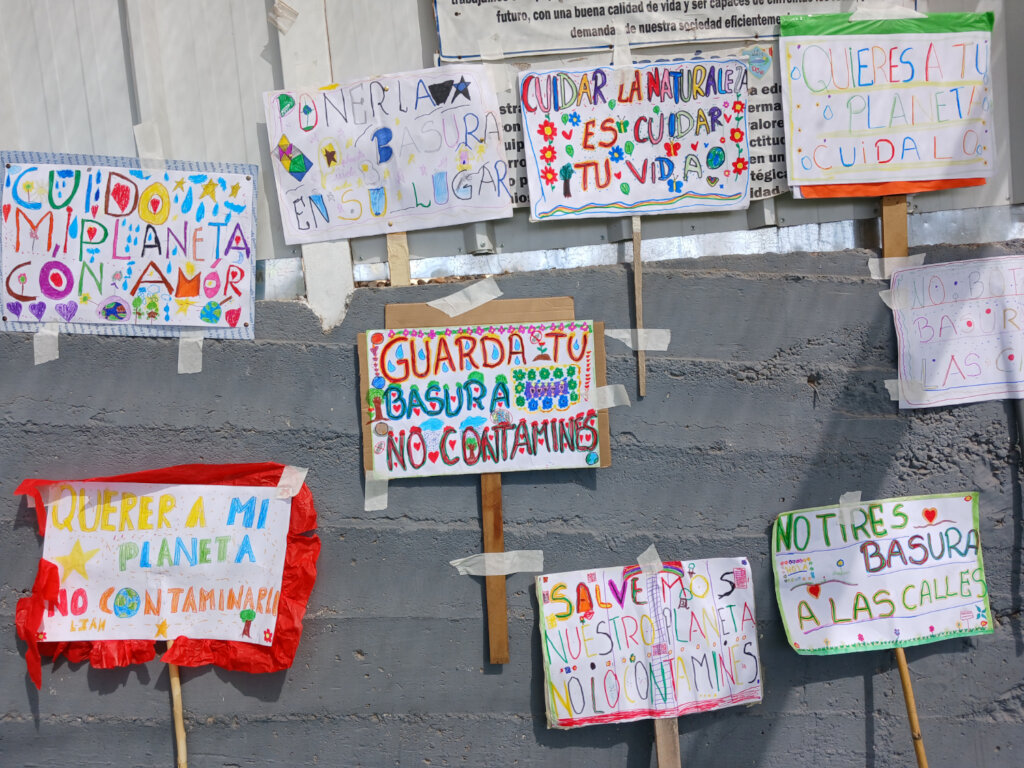 futuro, con una buena calidad de vida y ser capaces de
demanda de nuestra sociedad eficientemen
PONER LA
BASURA
EN SU LUGAR
CUIDAR LA NATURALEZA
ES CUIDAR
TU VIDA
QUIERES A TU
PLANETA
CUIDALO
CUIDO
MI PLANETA
CON AMOR
NO BOT
BASURA
LAS C
GUARDA TU
BASURA
NO CONTAMINES
QUERER A MI
PLANETA
NO CONTAMINARLO
SALVEMOS
NUESTRO PLANETA
NO LO CONTAMINES.
NO TIRES
BASURA
A LAS CALLES